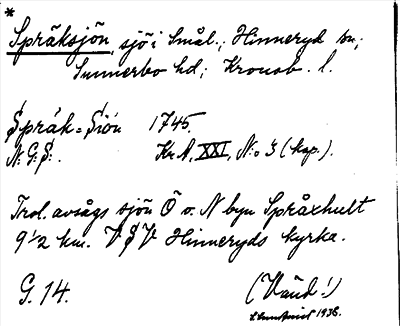 *
Språksjön, sjö i Smål.; Hinneryd sn;
Sunnerbo hd; Kronob. l.
Språk=Siön 1745.
N.G.S. Kr.A. XXI, N:o 3 (kop.).
Trol. avsågs sjön Ö o. N byn Språxhult
9 1/2 km. V S V Hinneryds kyrka.
G. 14. (Vänd!)
1938.